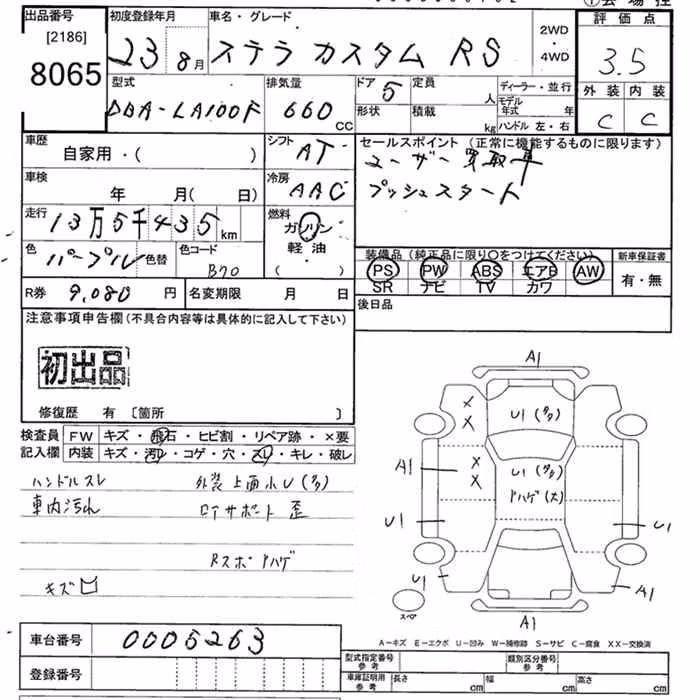 出品番号 [2186] 8065
初度登録年月 23 8月
車名・グレード ステラ カスタム RS
2WD・4WD
評価点 3.5
外装 C 内装 C
型式 DBA-LA100F
排気量 660 CC
ドア 5 形状
定員 人 積載 kg
ディーラー・並行
モデル年式 年
ハンドル 左・右
車歴 自家用・( )
シフト AT
セールスポイント (正常に機能するものに限ります)
ユーザー買取車
プッシュスタート
車検 年 月( 日)
冷房 AAC
走行 13万5千435 km
燃料 ガソリン・軽油・( )
色 パープル 色替 色コード B70
装備品 (純正品に限り○をつけてください)
PS PW ABS エアB AW
SR ナビ TV カワ
新車保証書 有・無
R券 9,080 円 名変期限 月 日
後日品
注意事項申告欄 (不具合内容等は具体的に記入して下さい)
初出品
修復歴 有 〔箇所 〕
検査員記入欄
FW キズ・飛石・ヒビ割・リペア跡・×要
内装 キズ・汚レ・コゲ・穴・スレ・キレ・破レ
ハンドルスレ 外装上面小U(多)
車内汚れ ロアサポート歪
Rスポーハゲ
キズ
A1
X
X
U1(多)
X
X
A1
U1(多)
ハゲ(大)
U1
U1
U1
A1
A1
スペア
A-キズ E-エクボ U-凹み W-補修跡 S-サビ C-腐食 XX-交換済
車台番号 0005263
登録番号
型式指定番号 参考 類別区分番号 参考
車庫証明用 参考 長さ cm 幅 cm 高さ cm